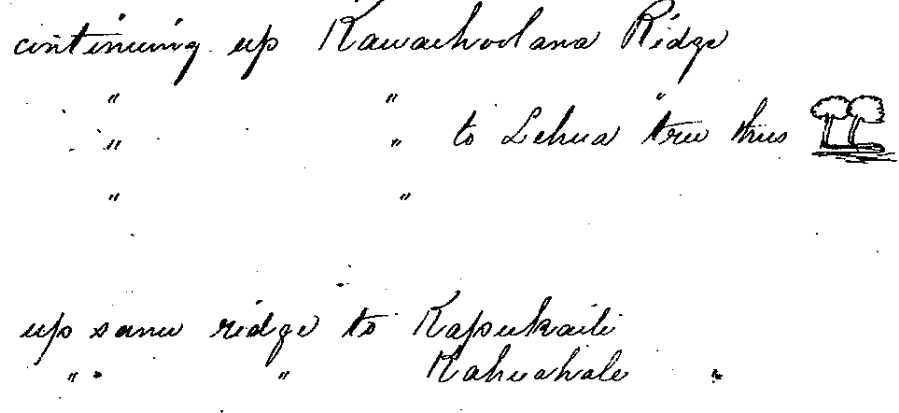 continuing up Kawaihoolana Ridge
" " "
" " to Lehua tree thus
" "
up same ridge to Kapukaili
" " Kahuahale "